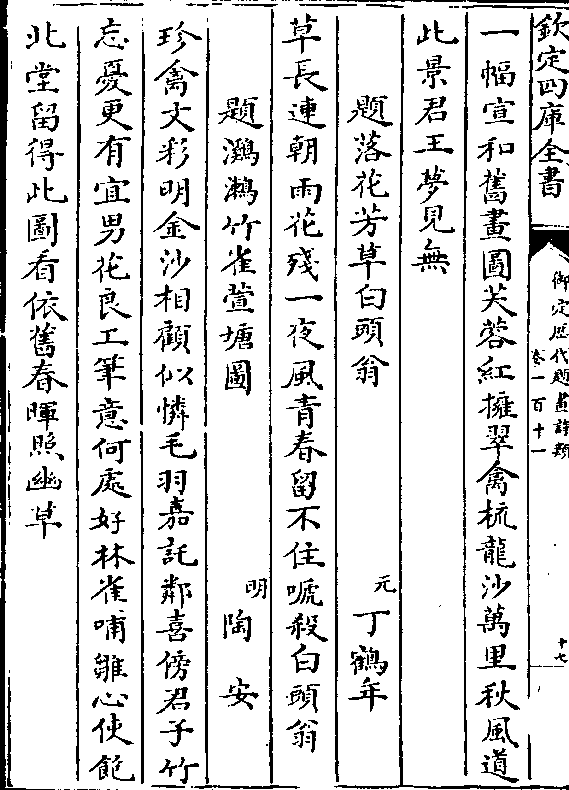 欽定四庫全書
御定歷代題畫詩類
卷一百十一
十七
一幅宣和舊畫圖芙蓉紅擁翠禽梳龍沙萬里秋風道
此景君王夢見無
題落花芳草白頭翁
元 丁鶴年
草長連朝雨花殘一夜風青春留不住啼殺白頭翁
題鸂鶒竹雀萱塘圖
明 陶安
珍禽文彩明金沙相顧似憐毛羽嘉託鄰喜傍君子竹
忘憂更有宜男花良工筆意何處好林雀哺雛心使飽
北堂留得此圖看依舊春暉照幽草